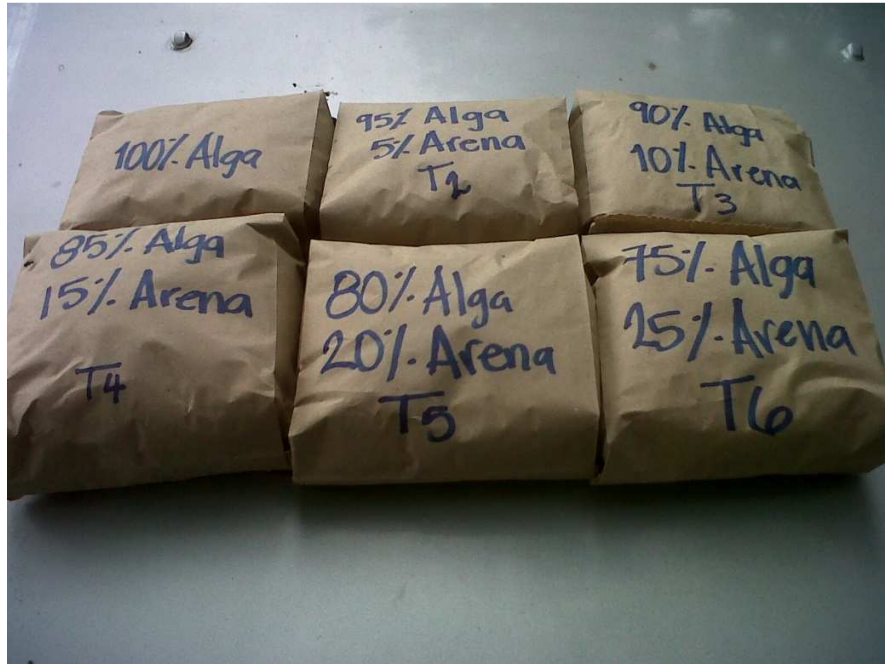 100% Alga
95% Alga
5% Arena
T2
90% Alga
10% Arena
T3
85% Alga
15% Arena
T4
80% Alga
20% Arena
T5
75% Alga
25% Arena
T6